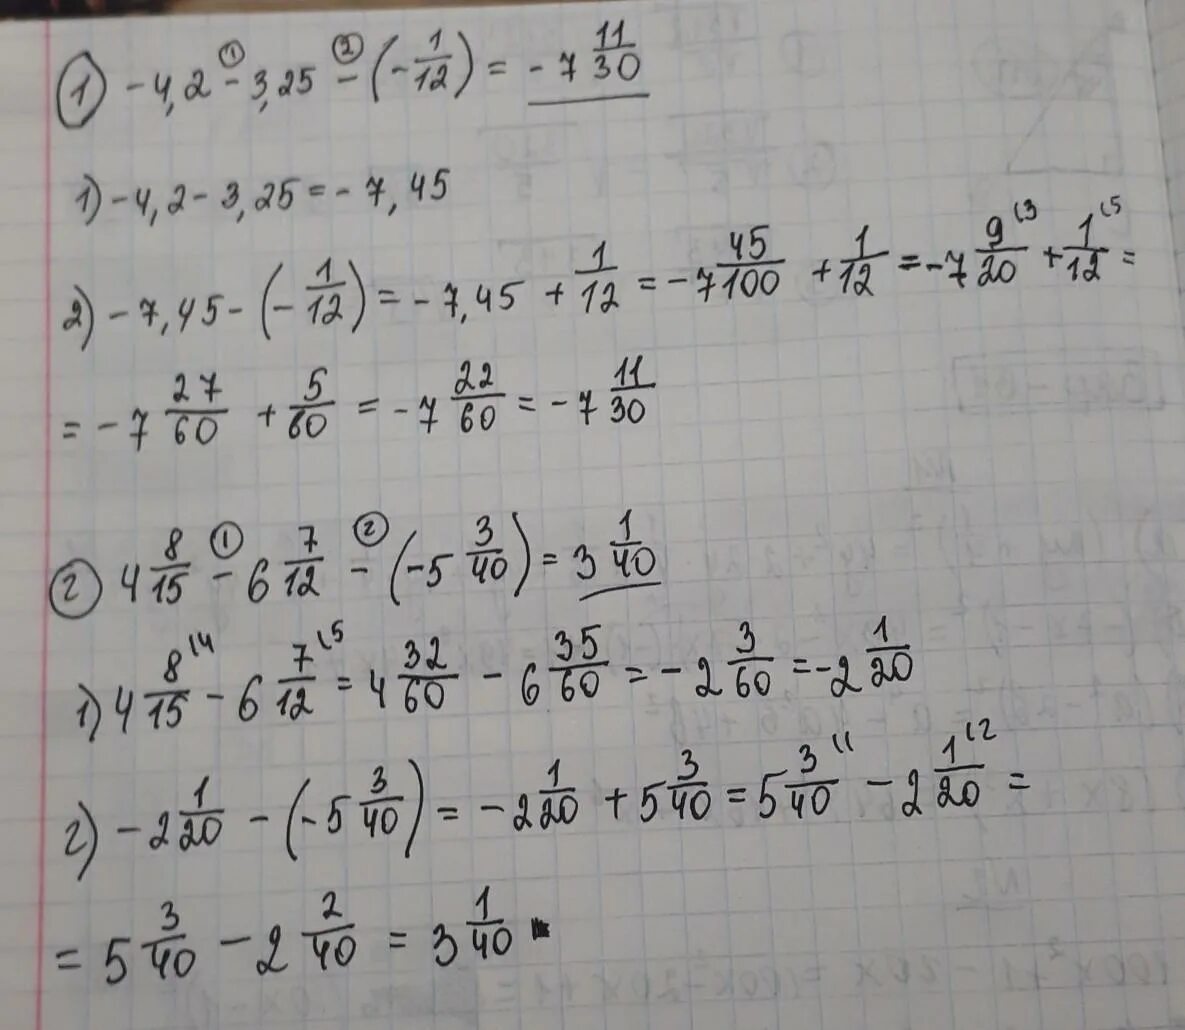 ① -4,2 -① 3,25 -② (-1/12) = -7 11/30
1) -4,2 - 3,25 = -7,45
2) -7,45 - (-1/12) = -7,45 + 1/12 = -7 45/100 + 1/12 = -7 9/20 (3 + 1/12 (5 =
= -7 27/60 + 5/60 = -7 22/60 = -7 11/30
② 4 8/15 -① 6 7/12 -② (-5 3/40) = 3 1/40
1) 4 8/15 (4 - 6 7/12 (5 = 4 32/60 - 6 35/60 = -2 3/60 = -2 1/20
2) -2 1/20 - (-5 3/40) = -2 1/20 + 5 3/40 = 5 3/40 (1 - 2 1/20 (2 =
= 5 3/40 - 2 2/40 = 3 1/40